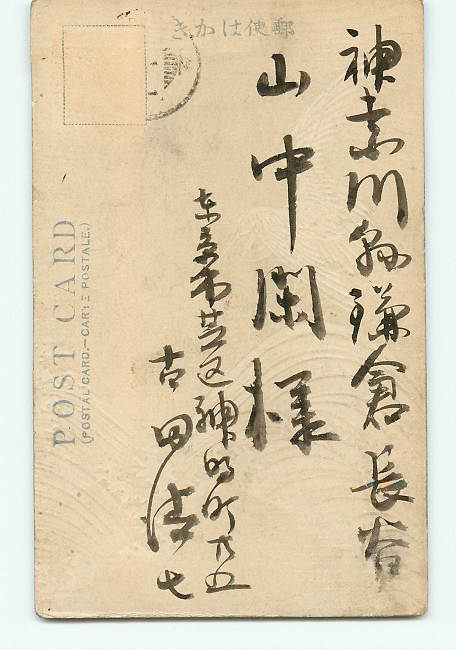 郵便はかき
神奈川縣鎌倉長谷
山中闌様
東京市芝区神明町廿五
古田清七
POST CARD
(POSTAL CARD.—CARTE POSTALE.)